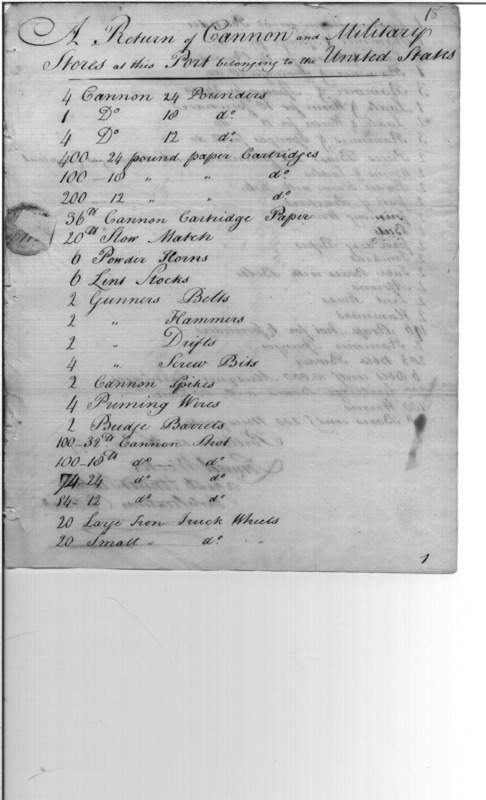 18
A Return of Cannon and Military
Stores at this Port belonging to the United States
4 Cannon 24 Pounders
1 Do 18 do.
4 Do 12 do.
400 — 24 pound paper Cartridges
100 — 18 " " do.
200 — 12 " " do.
36 lb Cannon Cartridge Paper
20 lb Slow Match
6 Powder Horns
6 Lint Stocks
2 Gunners Belts
2 " Hammers
2 " Drifts
4 " Screw Bits
2 Cannon Spikes
4 Priming Wires
2 Budje Barrels
100 — 32 lb Cannon Shot
100 — 18 lb do — do.
74 — 24 do — do.
84 — 12 do — do.
20 Large Iron Truck Wheels
20 Small " do. "
1